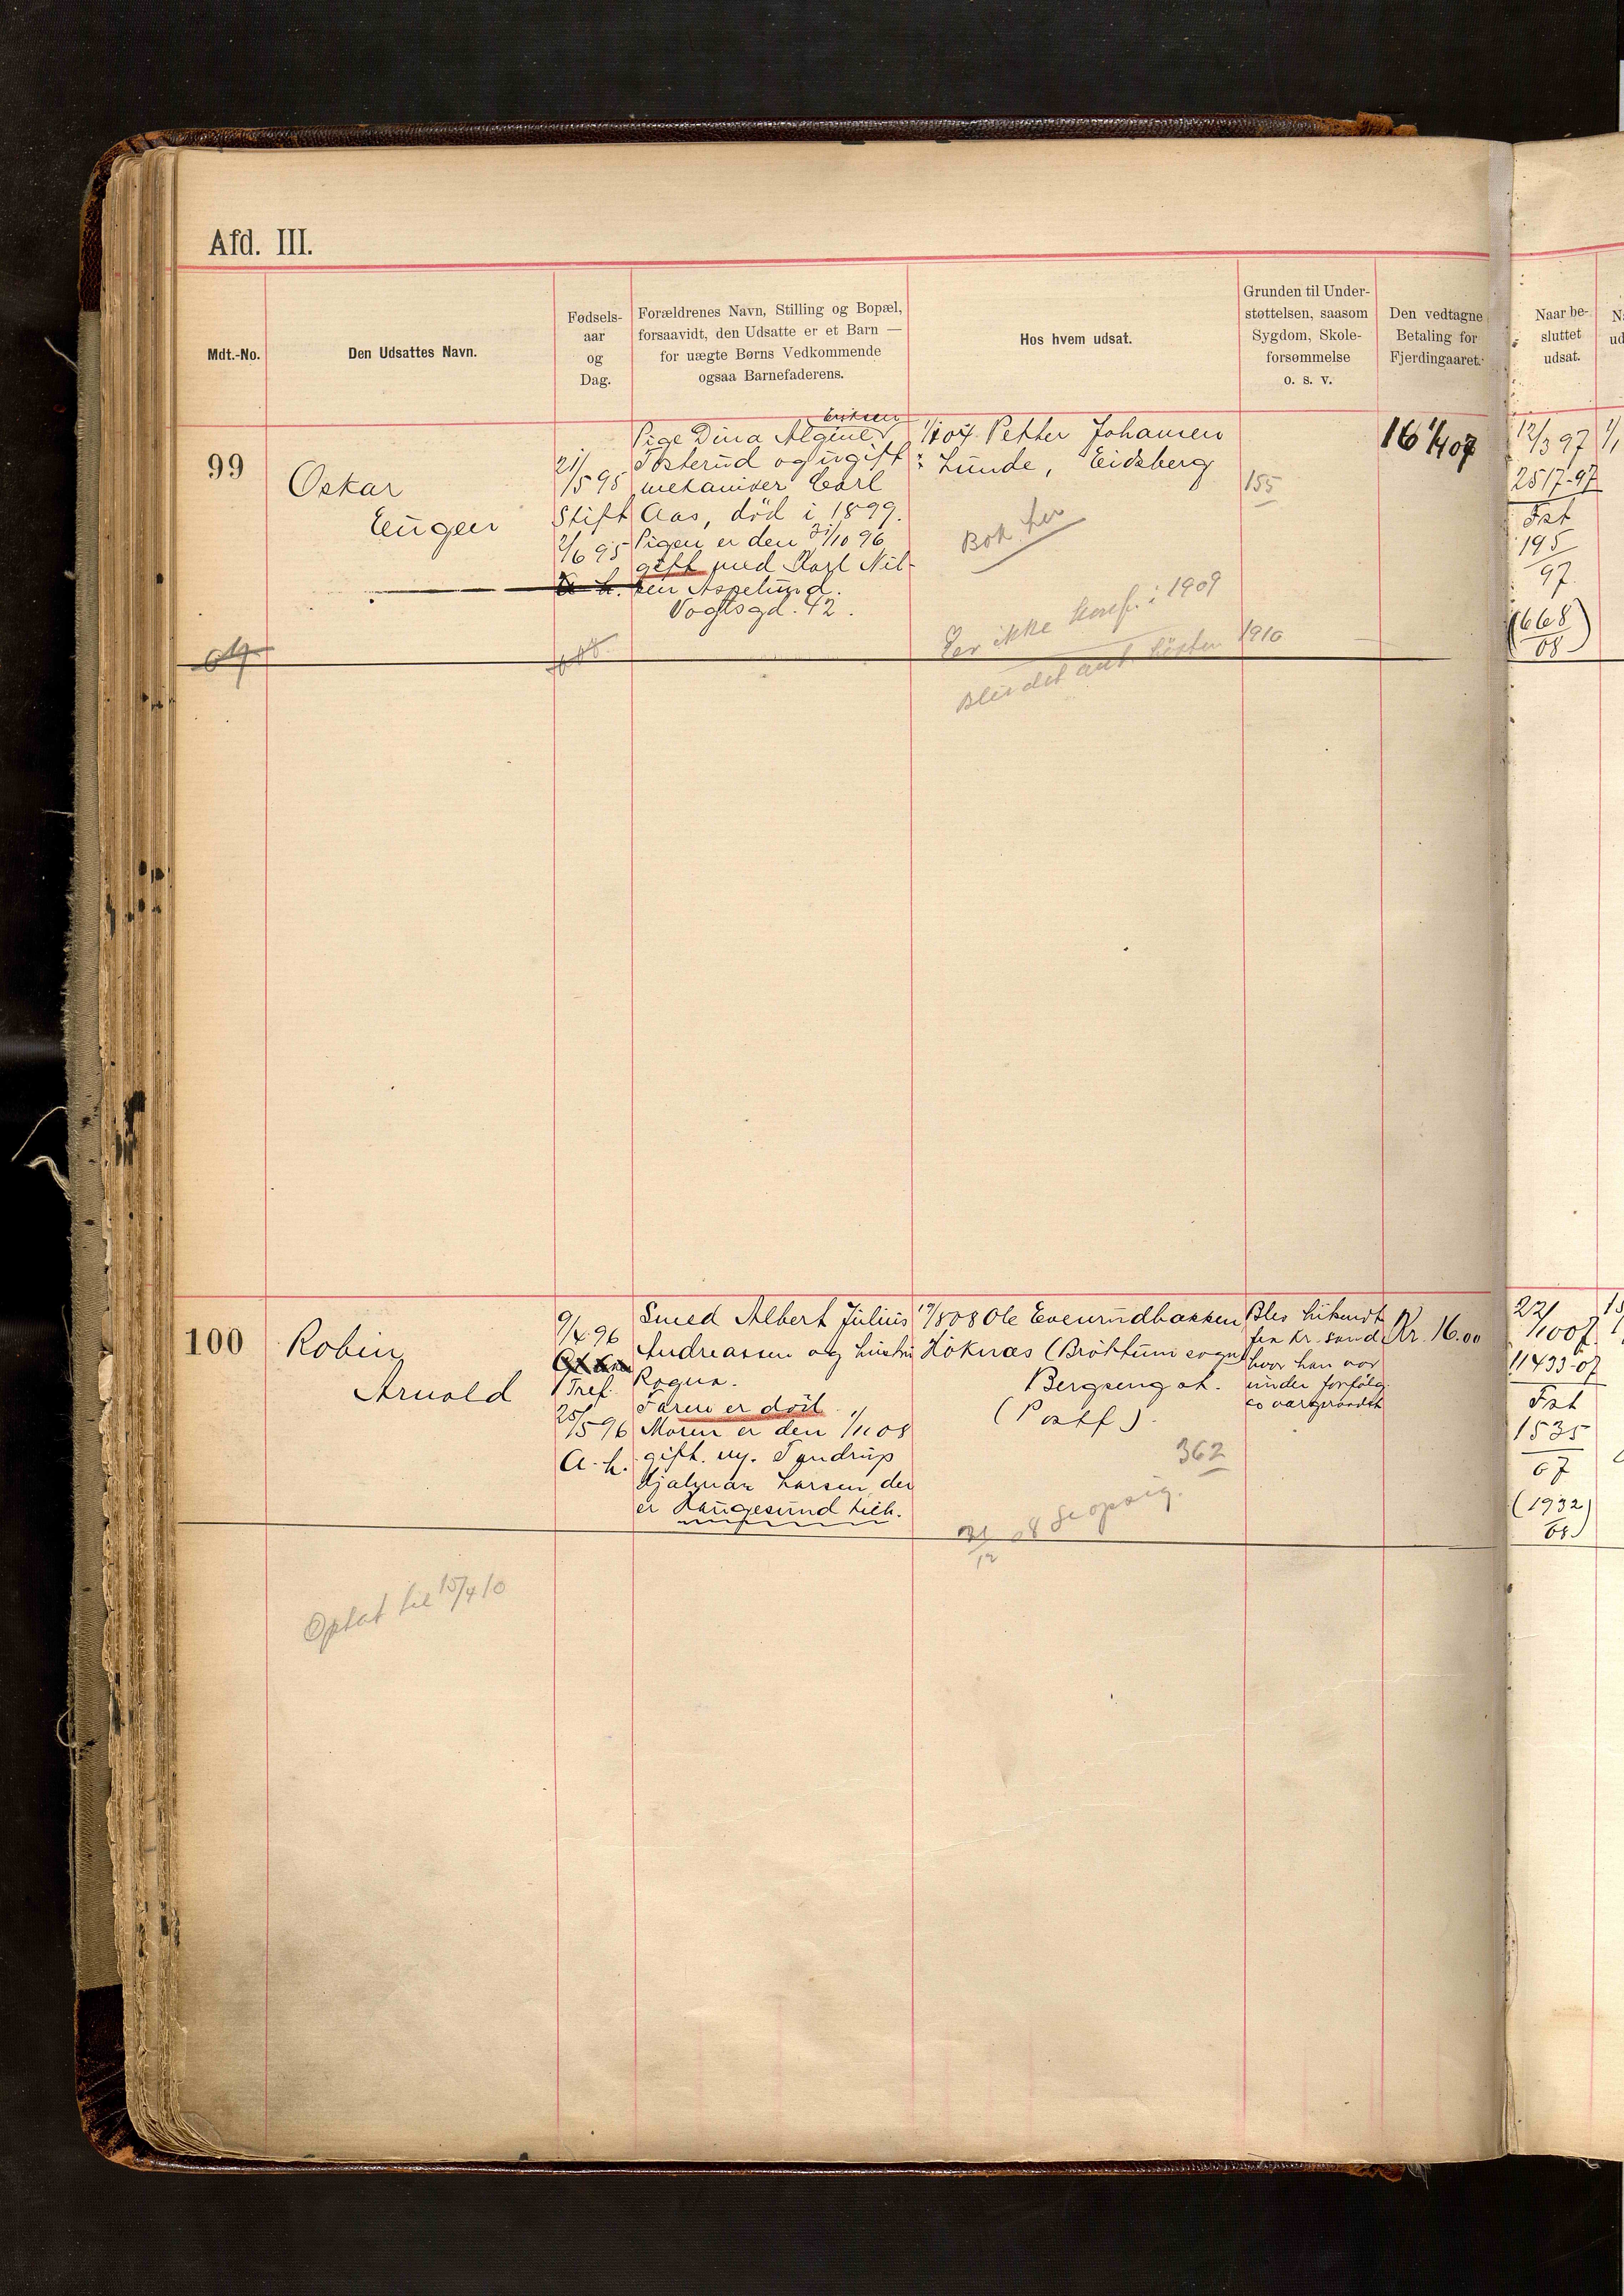 Afd. III.
Mdt.-No.
Den Udsattes Navn.
Fødsels-
aar
og
Dag.
Forældrenes Navn, Stilling og Bopæl,
forsaavidt, den Udsatte er et Barn —
for uægte Børns Vedkommende
ogsaa Barnefaderens.
Hos hvem udsat.
Grunden til Under-
støttelsen, saasom
Sygdom, Skole-
forsømmelse
o. s. v.
Den vedtagne
Betaling for
Fjerdingaaret.
Naar be-
sluttet
udsat.
99
Oskar
Eugen
21/5 95
Stift
2/6 95
Pige Dina Algine
Tosterud og ugift
mekaniker Carl
Aas, död i 1899.
Pigen er den 31/10 96
gift med Karl Nil-
sen Aspelund.
Vogtsgd. 42.
Petter Johansen
Lunde, Eidsberg
Bok her
Er ikke konf. i 1909
Blir det ant. hösten 1910
155
16 1/4 07
12/3 97
2517-97
Fat
195
97
(668
08)
100
Robin
Arnold
9/4 96
Tref.
25/5 96
a. h.
Smed Albert Julius
Andreassen og hustru
Ragna.
Faren er död
Moren er den 1/11 08
gift. m. Tandrup
Hjalmar Larsen, der
er Haugesund tilh.
17/8 08 Ole Evenrudbakken
Höknas (Bröttum sogn
Bergseng st.
(Postf).
362
Blev
fra Kr. sand
hvor han var
under forfölg.
Kr. 16.00
22/10 07
11433-07
Fat
1535
07
(1932)
08)
Optat til 15/4 10